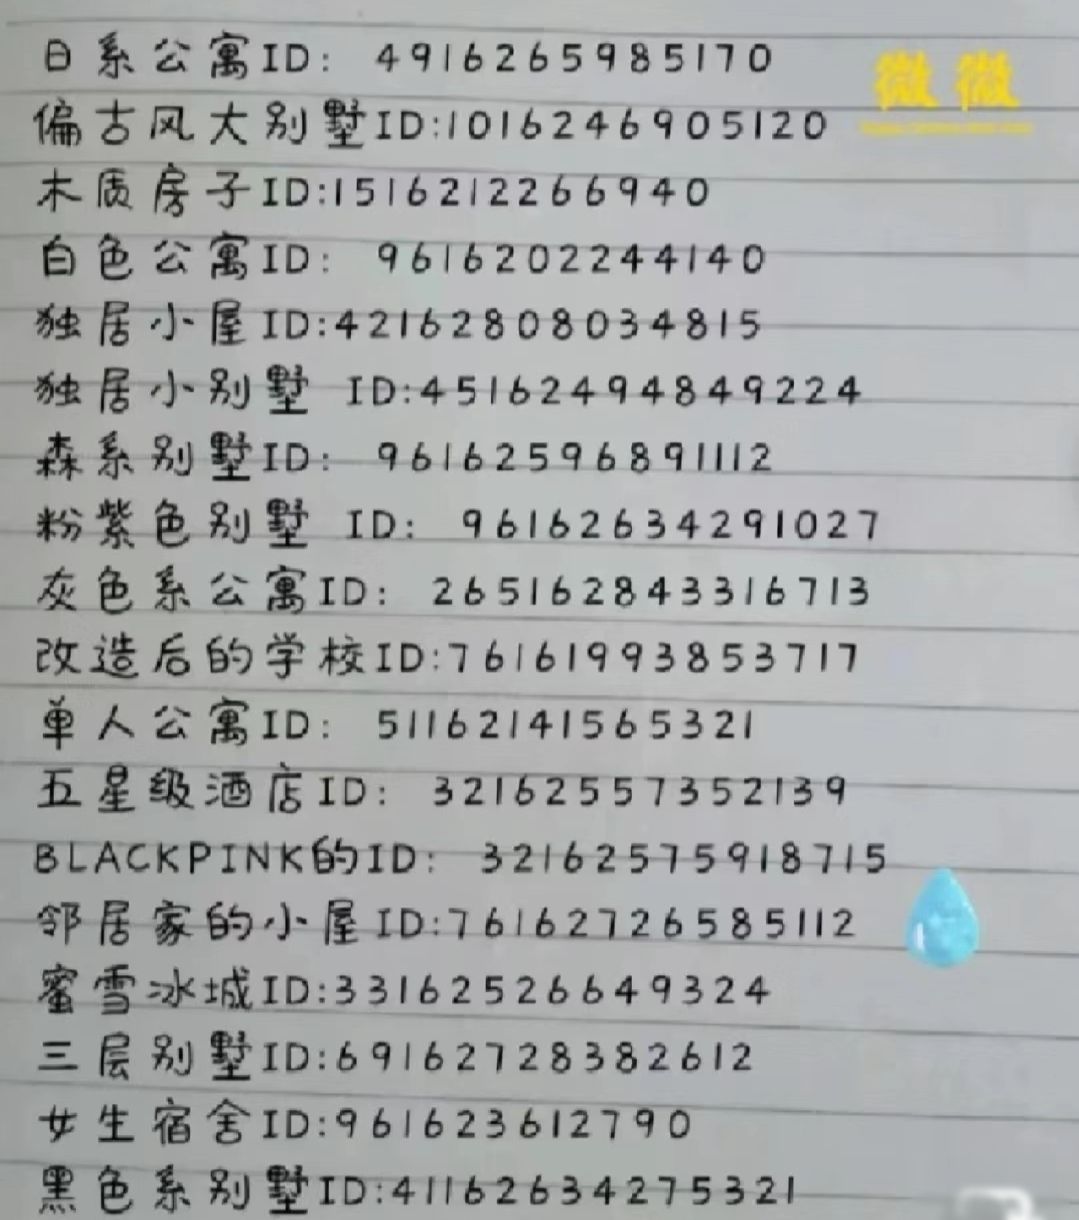 日系公寓ID: 4916265985170
微微
偏古风大别墅ID:1016246905120
木质房子ID:1516212266940
白色公寓ID: 9616202244140
独居小屋ID:42162808034815
独居小别墅 ID:45162494849224
森系别墅ID: 96162596891112
粉紫色别墅 ID: 96162634291027
灰色系公寓ID: 265162843316713
改造后的学校ID:76161993853717
单人公寓ID: 51162141565321
五星级酒店ID: 32162557352139
BLACKPINK的ID: 32162575918715
邻居家的小屋ID:76162726585112
蜜雪冰城ID:33162526649324
三层别墅ID:69162728382612
女生宿舍ID:961623612790
黑色系别墅ID:41162634275321